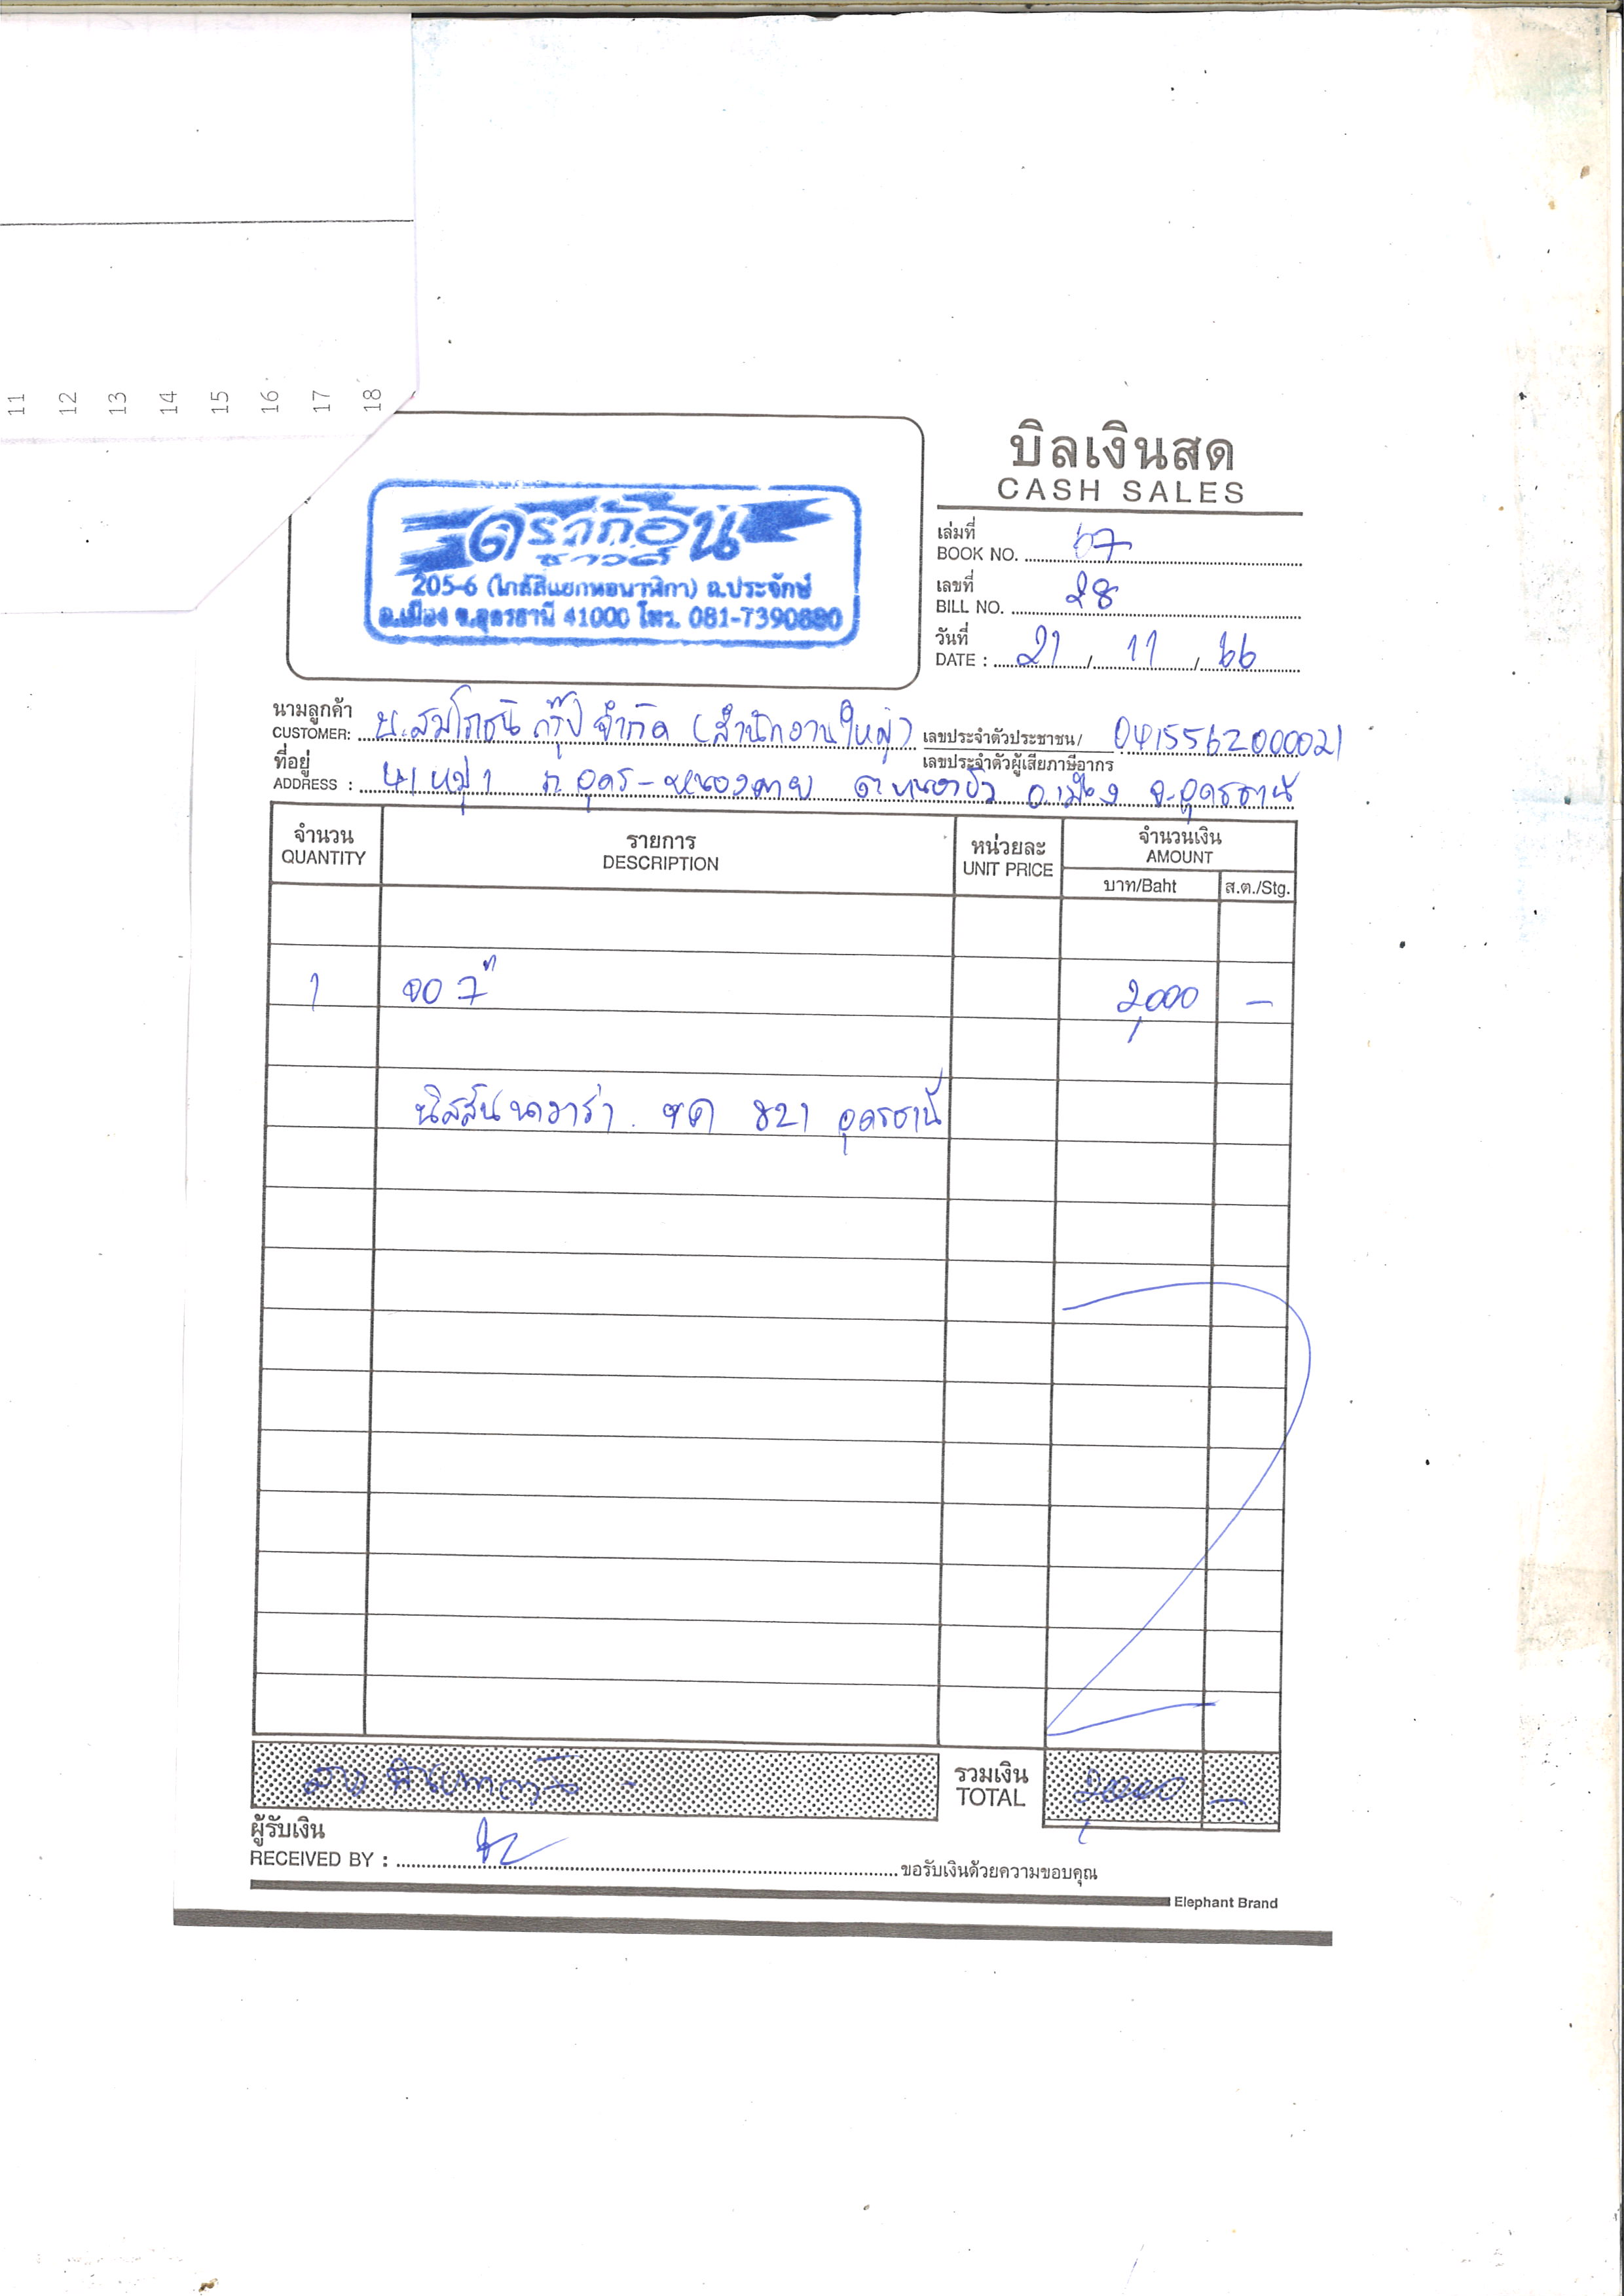 11 12 13 14 15 16 17 18
บิลเงินสด
CASH SALES
ดราก้อน
ซาวด์
205-6 (ใกล้สี่แยกหอนาฬิกา) ถ.ประจักษ์
อ.เมือง จ.อุดรธานี 41000 โทร. 081-7390880
เล่มที่
BOOK NO. 67
เลขที่
BILL NO. 28
วันที่
DATE : 21 / 11 / 66
นามลูกค้า
CUSTOMER: บ.สมโภชน์ กรุ๊ป จำกัด (สำนักงานใหญ่) เลขประจำตัวประชาชน/ 0415562000021
เลขประจำตัวผู้เสียภาษีอากร
ที่อยู่
ADDRESS : 41 หมู่ 1 ถ.อุดร-หนองคาย ต.หนองบัว อ.เมือง จ.อุดรธานี
จำนวน รายการ หน่วยละ จำนวนเงิน
QUANTITY DESCRIPTION UNIT PRICE AMOUNT
บาท/Baht ส.ต./Stg.
1 จอ 7" 2,000 -
นิสสัน นาวาร่า ขค 821 อุดรธานี
สองพันบาทถ้วน - รวมเงิน 2,000 -
TOTAL
ผู้รับเงิน
RECEIVED BY : ขอรับเงินด้วยความขอบคุณ
Elephant Brand